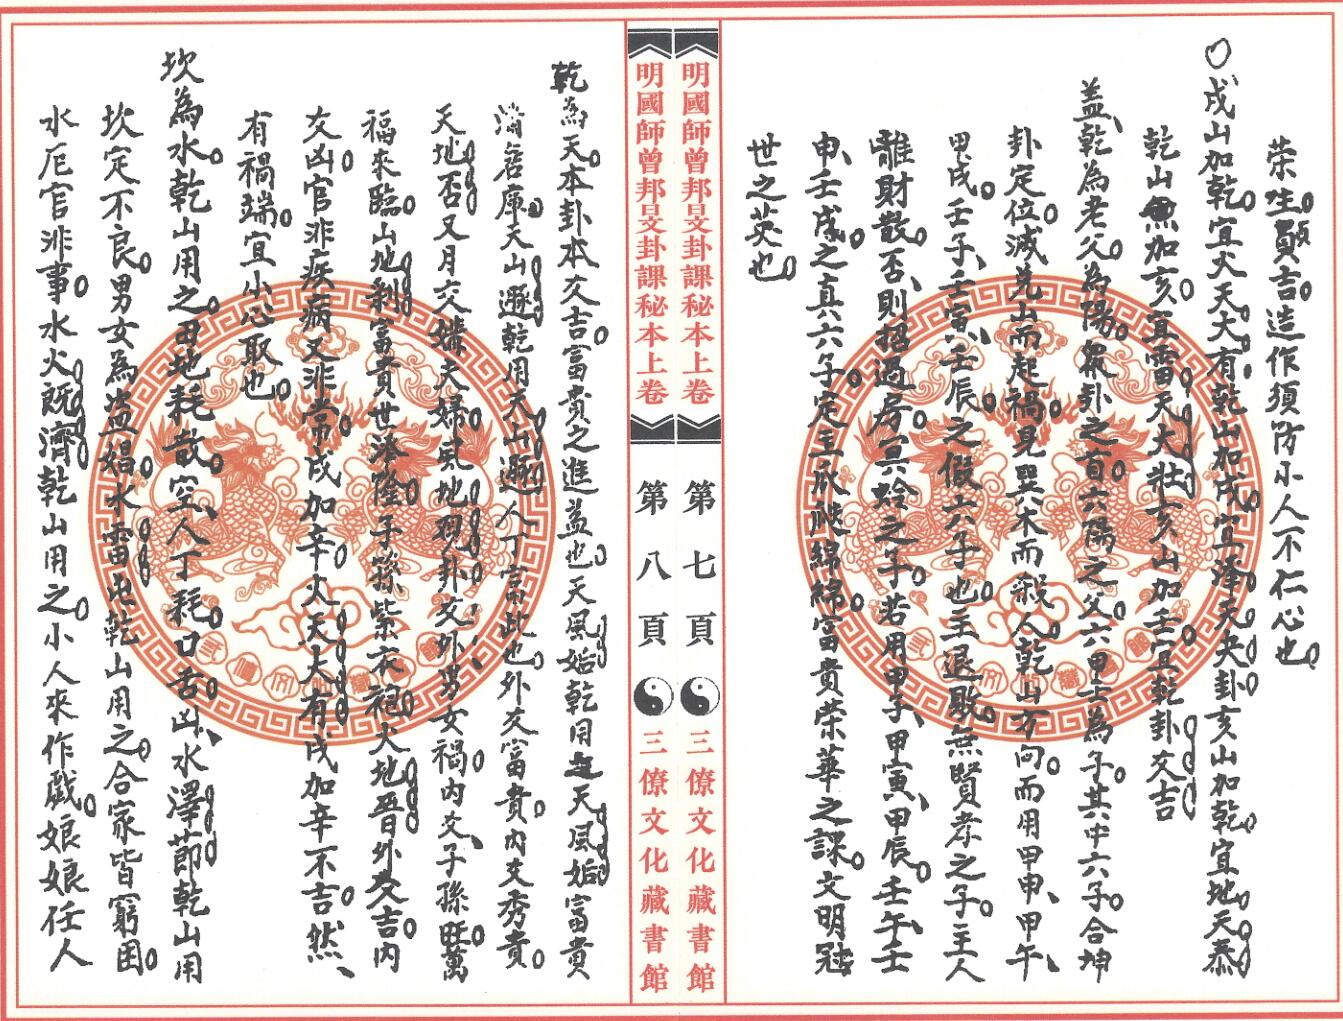 荣生顕吉造作須防小人不仁心也
〇戌山加乾宜火天大有乾山加戌宜泽天夬卦亥山加乾宜地天泰
乾山加亥宜雷天大壮亥山加壬宜乾卦爻吉
盖乾為老父為陽眾卦之首六陽之父六甲士為子其中六子合坤
卦定位滅兑山而起禍見巽木而殺人乾山方向而用甲申甲午
甲戌壬子壬寅壬辰之假六子也主退敗無賢孝之子主人
離財散否則招過房冥蛉之子若用甲子甲寅甲辰壬午壬
申壬戌之真六子定主瓜瓞綿綿富貴荣華之課文明冠
世之英也
明國師曾邦旻卦課秘本上卷
第七頁
三僚文化藏書館
明國師曾邦旻卦課秘本上卷
第八頁
三僚文化藏書館
乾為天本卦本爻吉富貴之進益也天風姤乾用天風姤富貴
滿倉庫天山遯乾用天山遯人丁富此也外爻富貴内爻秀貴
天地否又月六爻媾夫婦風地观卦爻外男女禍内爻子孫旺萬
福來臨山地剥富貴世添隆子孫紫衣袍火地晋外爻吉内
爻凶官非疾病又非常戌加辛火天大有戌加辛不吉然
有禍端宜小心取也
坎為水乾山用之田地耗散空人丁耗口舌凶水澤節乾山用
坎定不良男女為盗娼水雷屯乾山用之合家皆窮困
水厄官非事水火既濟乾山用之小人來作戲娘娘任人